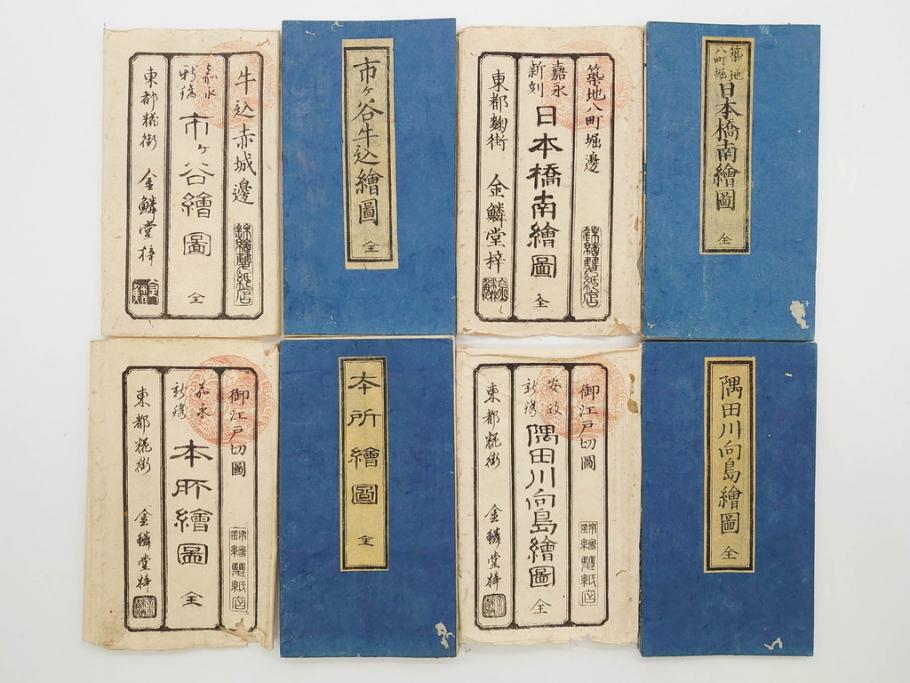 牛込赤城邊
錦繪雙紙店
嘉永
新鐫
市ヶ谷繪圖
全
東都糀街
金鱗堂梓
市ヶ谷牛込繪圖
全
築地八町堀邊
錦繪雙紙店
嘉永
新刻
日本橋南繪圖
全
東都麴街
金鱗堂梓
築地
八町堀
日本橋南繪圖
全
御江戸切圖
錦繪雙紙店
嘉永
新鐫
本所繪圖
全
東都糀街
金鱗堂梓
本所繪圖
全
御江戸切圖
錦繪雙紙店
安政
新鐫
隅田川向島繪圖
全
東都糀街
金鱗堂梓
隅田川向島繪圖
全